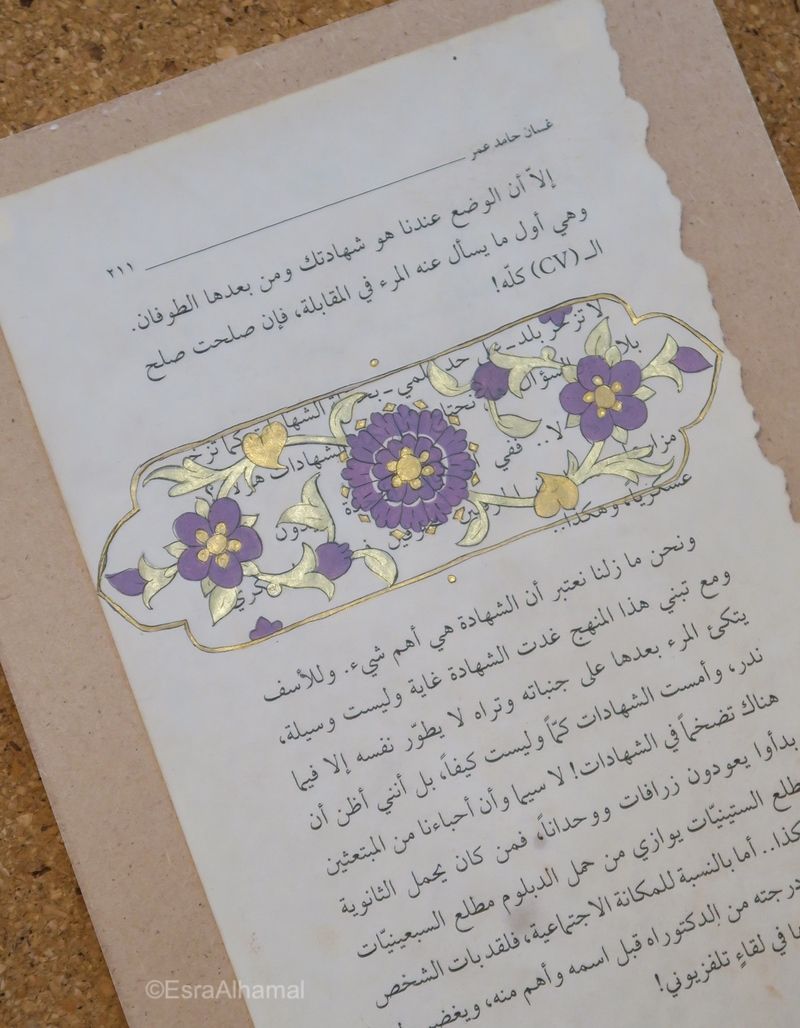 غسان حامد عمر
٢١١
إلاّ أن الوضع عندنا هو شهادتك ومن بعدها الطوفان.
وهي أول ما يسأل عنه المرء في المقابلة، فإن صلحت صلح
الـ (CV) كلّه!
لا تزخر بلد ـ حد كما
السؤال
لا.. ففي
عسكرياً، وهكذا..
ونحن ما زلنا نعتبر أن الشهادة هي أهم شيء. وللأسف
ومع تبني هذا المنهج غدت الشهادة غاية وليست وسيلة،
يتكئ المرء بعدها على جنباته وتراه لا يطوّر نفسه إلا فيما
ندر، وأمست الشهادات كمّاً وليست كيفاً، بل أنني أظن أن
هناك تضخماً في الشهادات! لا سيما وأن أحباءنا من المبتعثين
بدأوا يعودون زرافات ووحداناً، فمن كان يحمل الثانوية
طلع الستينيّات يوازي من حمل الدبلوم مطلع السبعينيّات
كذا.. أما بالنسبة للمكانة الاجتماعية، فلقد بات الشخص
درجته من الدكتوراه قبل اسمه وأهم منه، ويغضب
في لقاءٍ تلفزيوني!
©EsraAlhamal